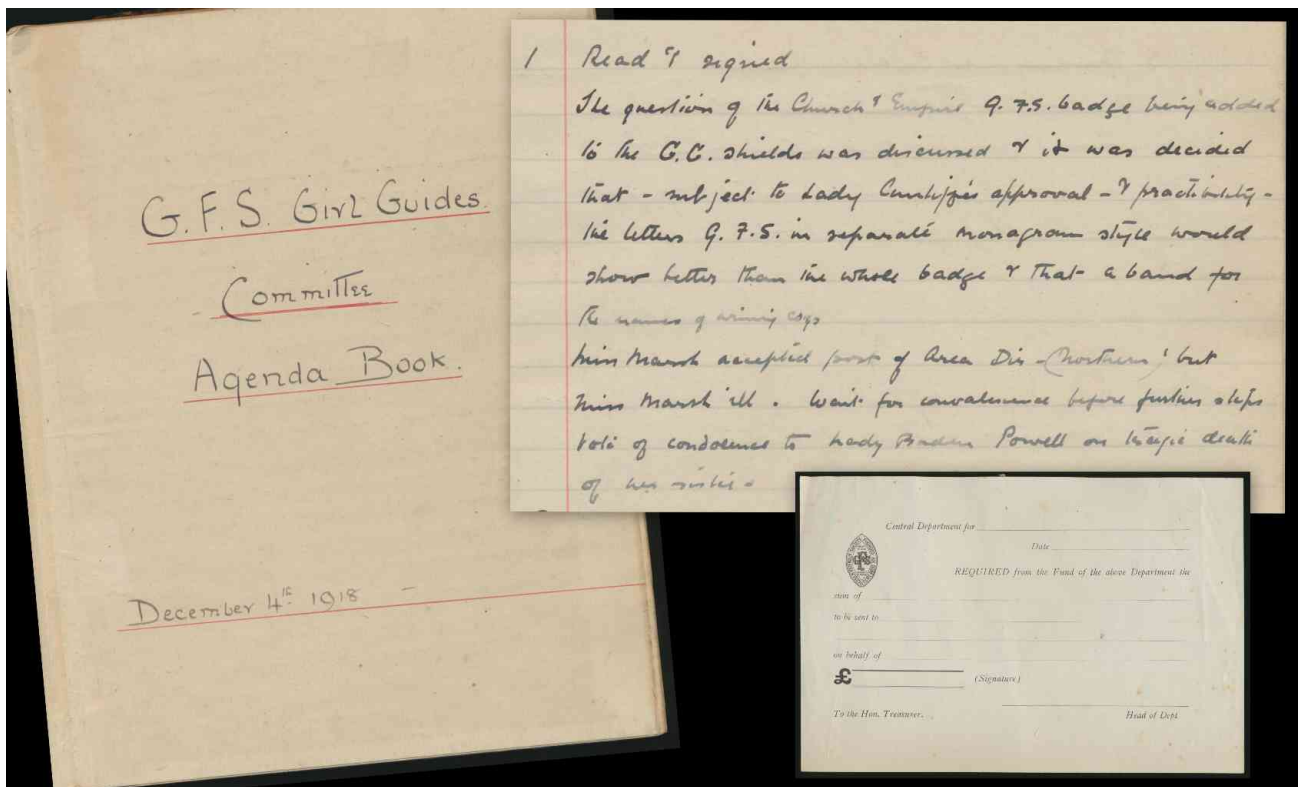 G.F.S. Girl Guides.
Committee
Agenda Book.
December 4th 1918 -
1 Read & signed
The question of the Church & Empire G.F.S. badge being added
to the G.G. shields was discussed & it was decided
that - subject to Lady Cunliffe's approval - & practicability -
the letters G.F.S. in separate monogram style would
show better than the whole badge & that a band for
the names of winning coys
Miss Marsh accepted post of Area Dir - (Northern) but
Miss Marsh ill. Wait for convalescence before further steps
Vote of condolence to Lady Baden Powell on tragic death
of her sister -
Central Department for
Date
REQUIRED from the Fund of the above Department the
sum of
to be sent to
on behalf of
£ (Signature)
To the Hon. Treasurer. Head of Dept